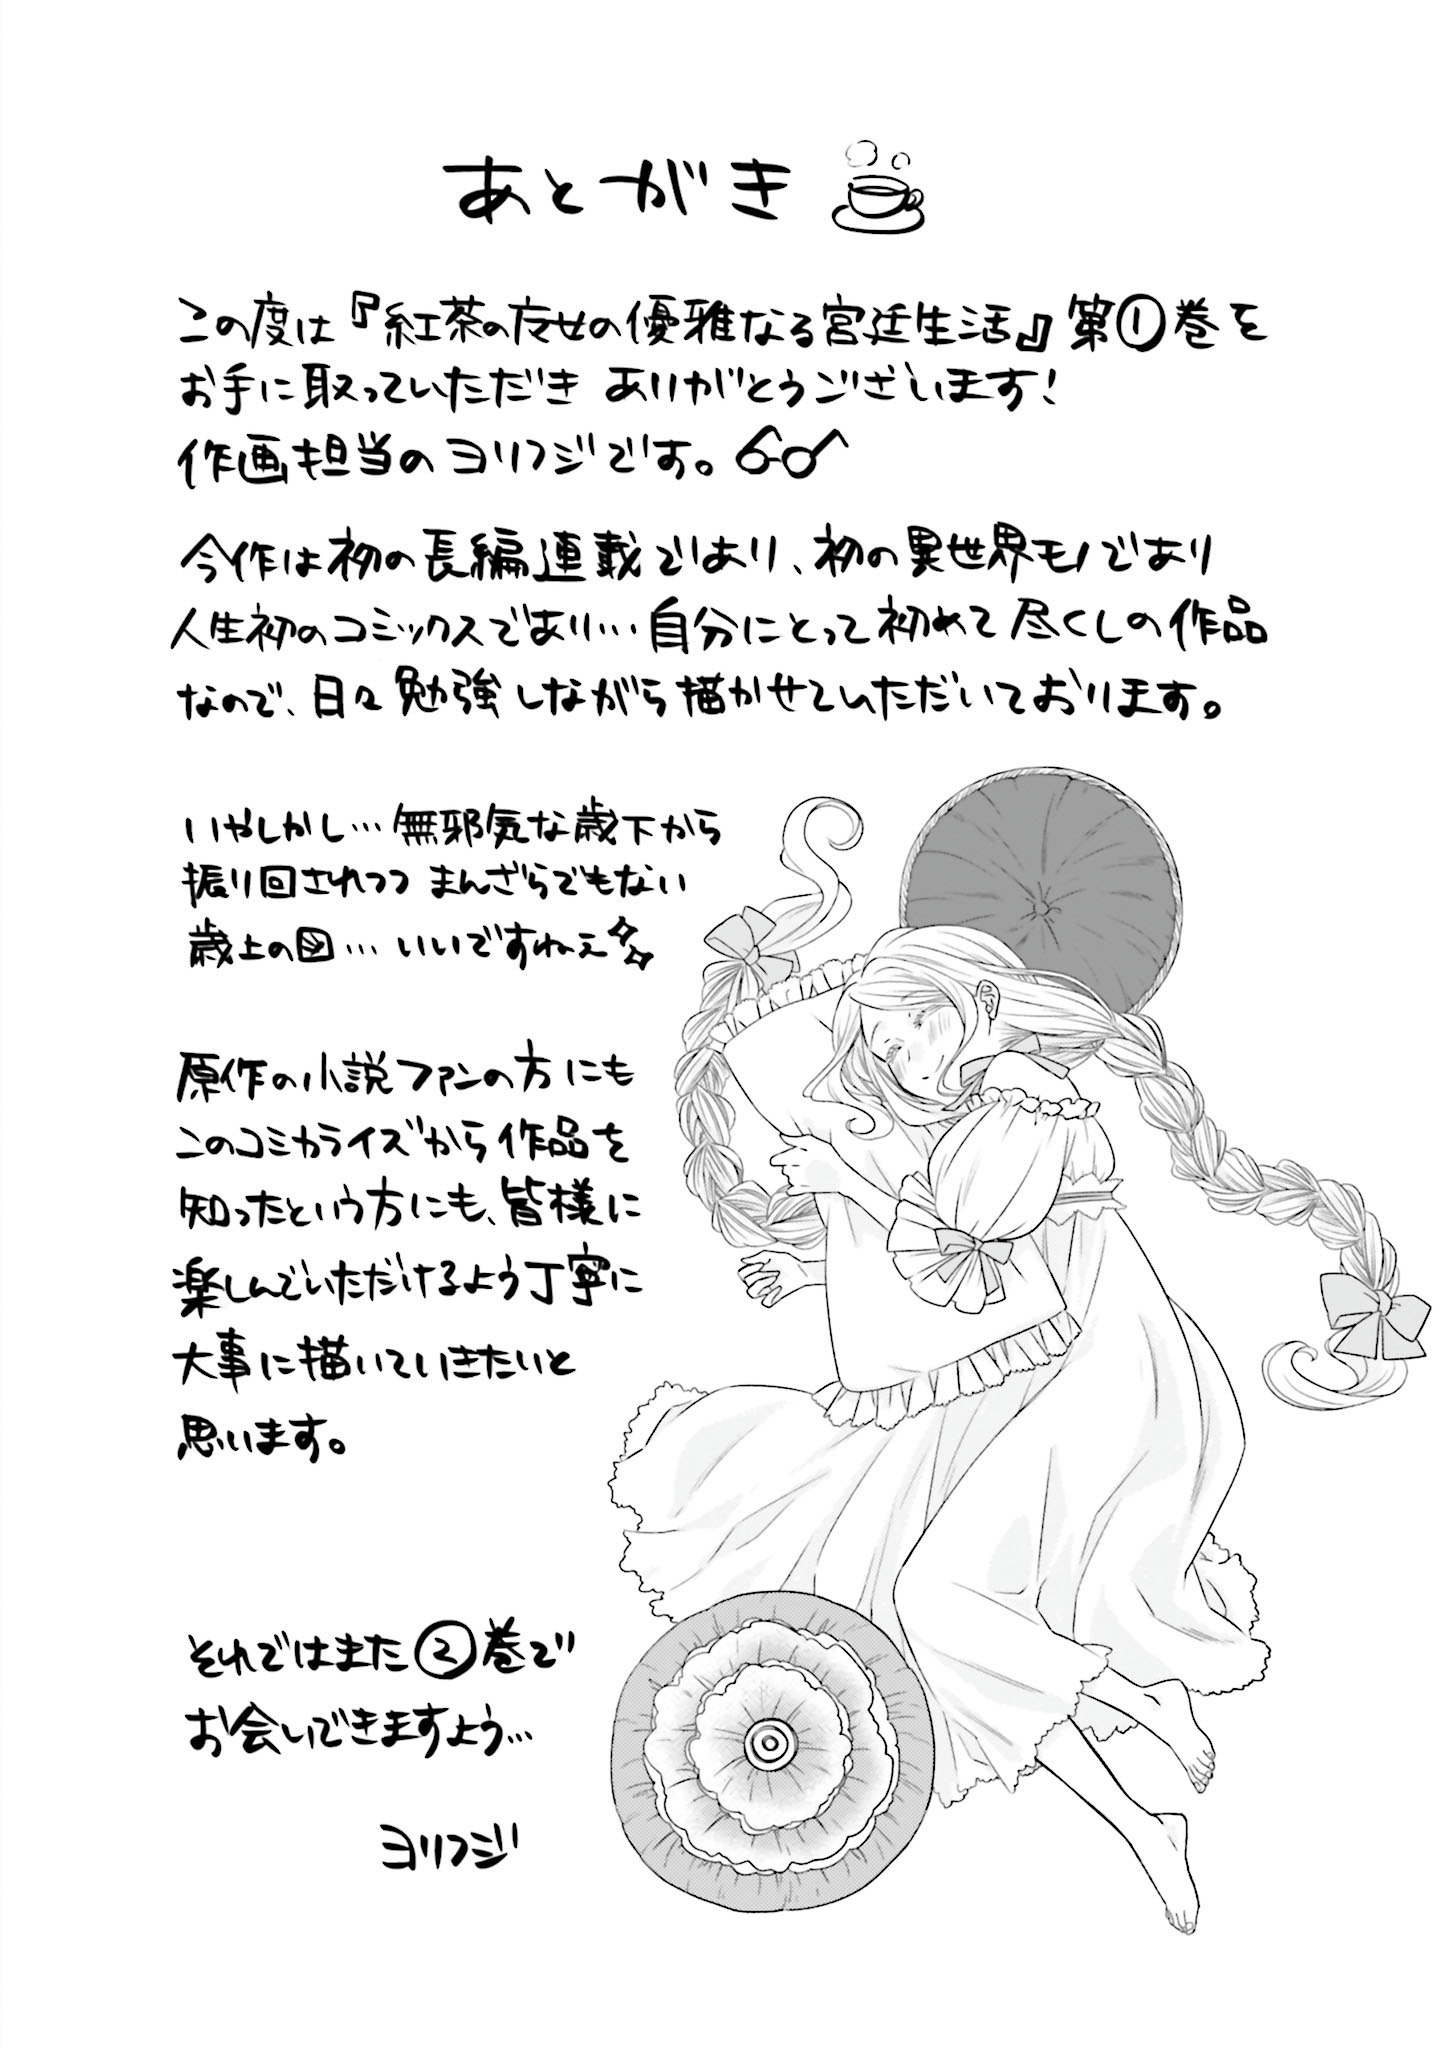 あとがき
この度は『紅茶の魔女の優雅なる宮廷生活』第①巻を
お手に取っていただき ありがとうございます!
作画担当のヨリフジです。
今作は初の長編連載であり、初の異世界モノであり
人生初のコミックスであり…自分にとって初めて尽くしの作品
なので、日々勉強しながら描かせていただいております。
いやしかし…無邪気な歳下から
振り回されつつ まんざらでもない
歳上の図…いいですねえ
原作の小説ファンの方にも
このコミカライズから作品を
知ったという方にも、皆様に
楽しんでいただけるよう丁寧に
大事に描いていきたいと
思います。
それではまた②巻で
お会いできますよう…
ヨリフジ